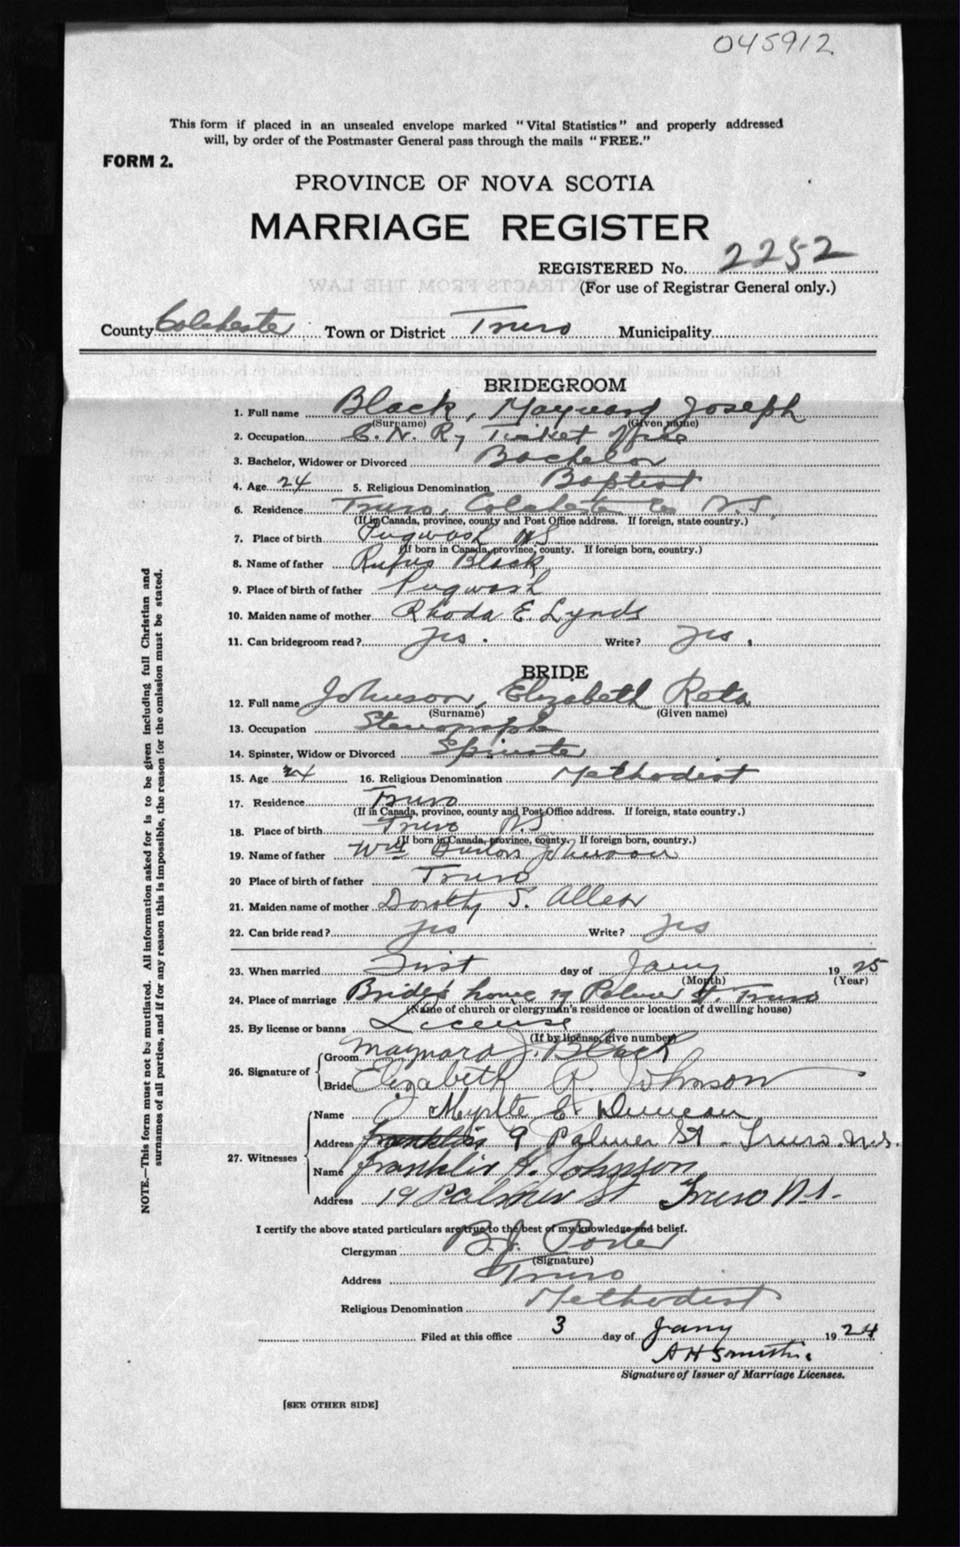 045912
This form if placed in an unsealed envelope marked "Vital Statistics" and properly addressed
will, by order of the Postmaster General pass through the mails "FREE."
FORM 2.
PROVINCE OF NOVA SCOTIA
MARRIAGE REGISTER
REGISTERED No. 2252
(For use of Registrar General only.)
County Colchester Town or District Truro Municipality
BRIDEGROOM
1. Full name Black, Maynard Joseph
(Surname) (Given name)
2. Occupation C. N. R, Ticket Office
3. Bachelor, Widower or Divorced Bachelor
4. Age 24 5. Religious Denomination Baptist
6. Residence Truro, Colchester Co N.S.
(If in Canada, province, county and Post Office address. If foreign, state country.)
7. Place of birth Pugwash N.S
(If born in Canada, province, county. If foreign born, country.)
8. Name of father Rufus Black
9. Place of birth of father Pugwash
10. Maiden name of mother Rhoda E. Lynds
11. Can bridegroom read? Yes. Write? Yes.
BRIDE
12. Full name Johnson, Elizabeth Reta
(Surname) (Given name)
13. Occupation
14. Spinster, Widow or Divorced Spinster
15. Age 24 16. Religious Denomination Methodist
17. Residence Truro
(If in Canada, province, county and Post Office address. If foreign, state country.)
18. Place of birth Truro N.S
(If born in Canada, province, county. If foreign born, country.)
19. Name of father Wm Johnson
20 Place of birth of father Truro
21. Maiden name of mother Dorothy S. Allen
22. Can bride read? Yes Write? Yes
23. When married First day of Jany 1925
(Month) (Year)
24. Place of marriage Bride's home 19 Palmer St. Truro
(Name of church or clergyman's residence or location of dwelling house)
25. By license or banns License
(If by license, give number)
26. Signature of
Groom Maynard J. Black
Bride Elizabeth R. Johnson
27. Witnesses
Name J Myrtle E. Duncan
Address 9 Palmer St - Truro N.S.
Name Franklin H. Johnson
Address 19 Palmer St Truro N.S.
I certify the above stated particulars are true to the best of my knowledge and belief.
Clergyman B.J. Porter
(Signature)
Address Truro
Religious Denomination Methodist
Filed at this office 3 day of Jany 1924
A H Smith.
Signature of Issuer of Marriage Licenses.
[SEE OTHER SIDE]
NOTE.—This form must not be mutilated. All information asked for is to be given including full Christian and
surnames of all parties, and if for any reason this is impossible, the reason for the omission must be stated.